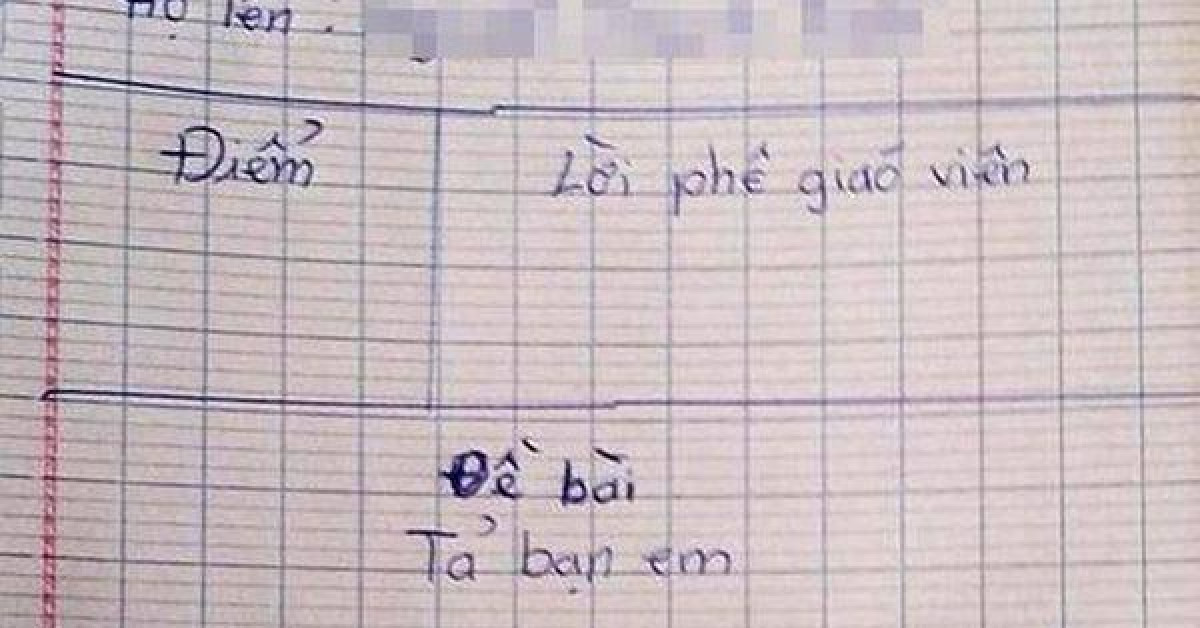 Họ tên :
Điểm
Lời phê giáo viên
Đề bài
Tả bạn em